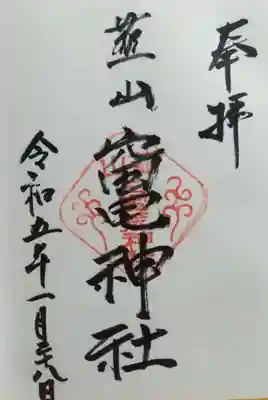 奉拝
山竈神社
令和五年一月二十八日